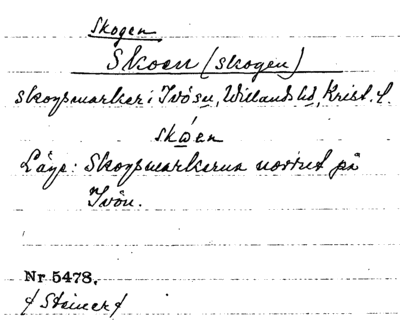 Skogen
Skoen (skogen)
skogsmarker i Ivö sn, Willands hd, Krist. l.
skωen
Läge: Skogsmarkerna norrut på
Ivön.
Nr 5478.
/Steiner/